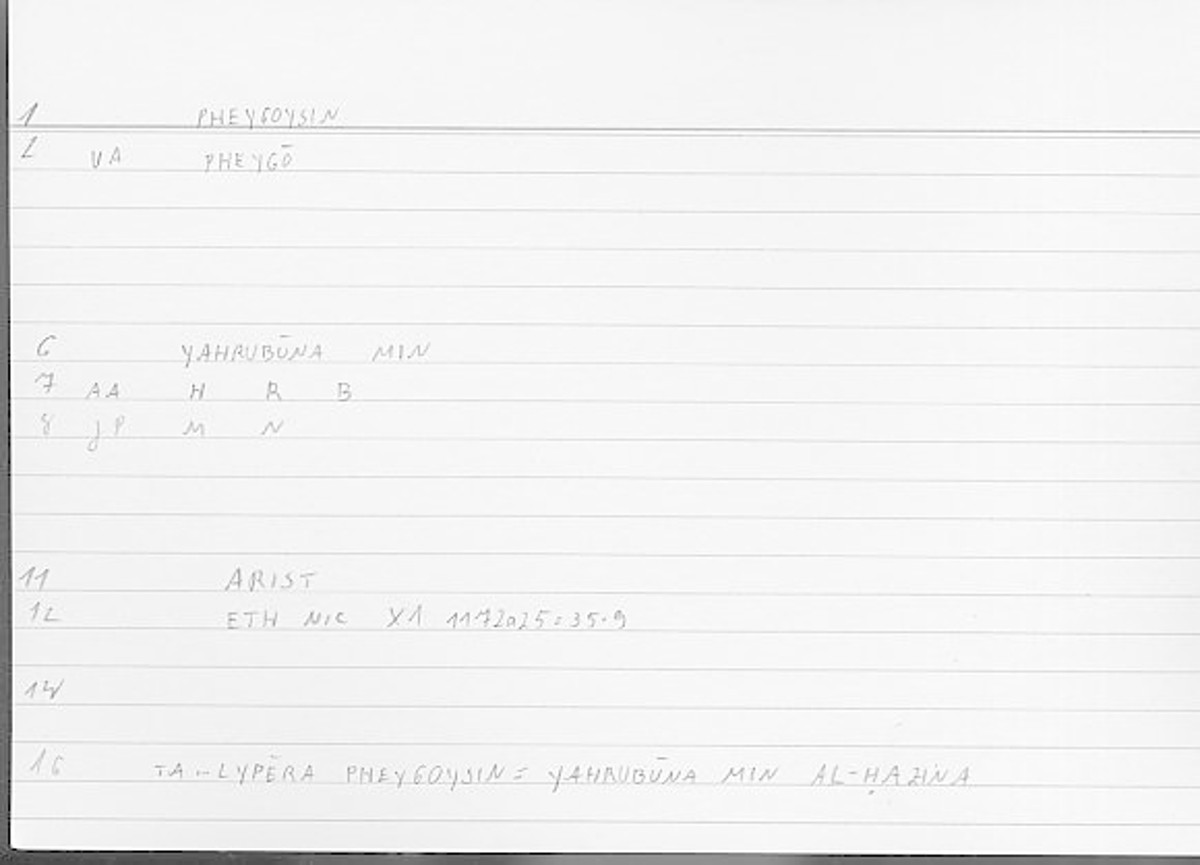 1 PHEYGOYSIN
2 VA PHEYGŌ
6 YAHRUBŪNA MIN
7 AA H R B
8 JP M N
11 ARIST
12 ETH NIC X1 1172a25 : 35.9
14
16 TA .. LYPĒRA PHEYGOYSIN = YAHRUBŪNA MIN AL-ḤAZINA